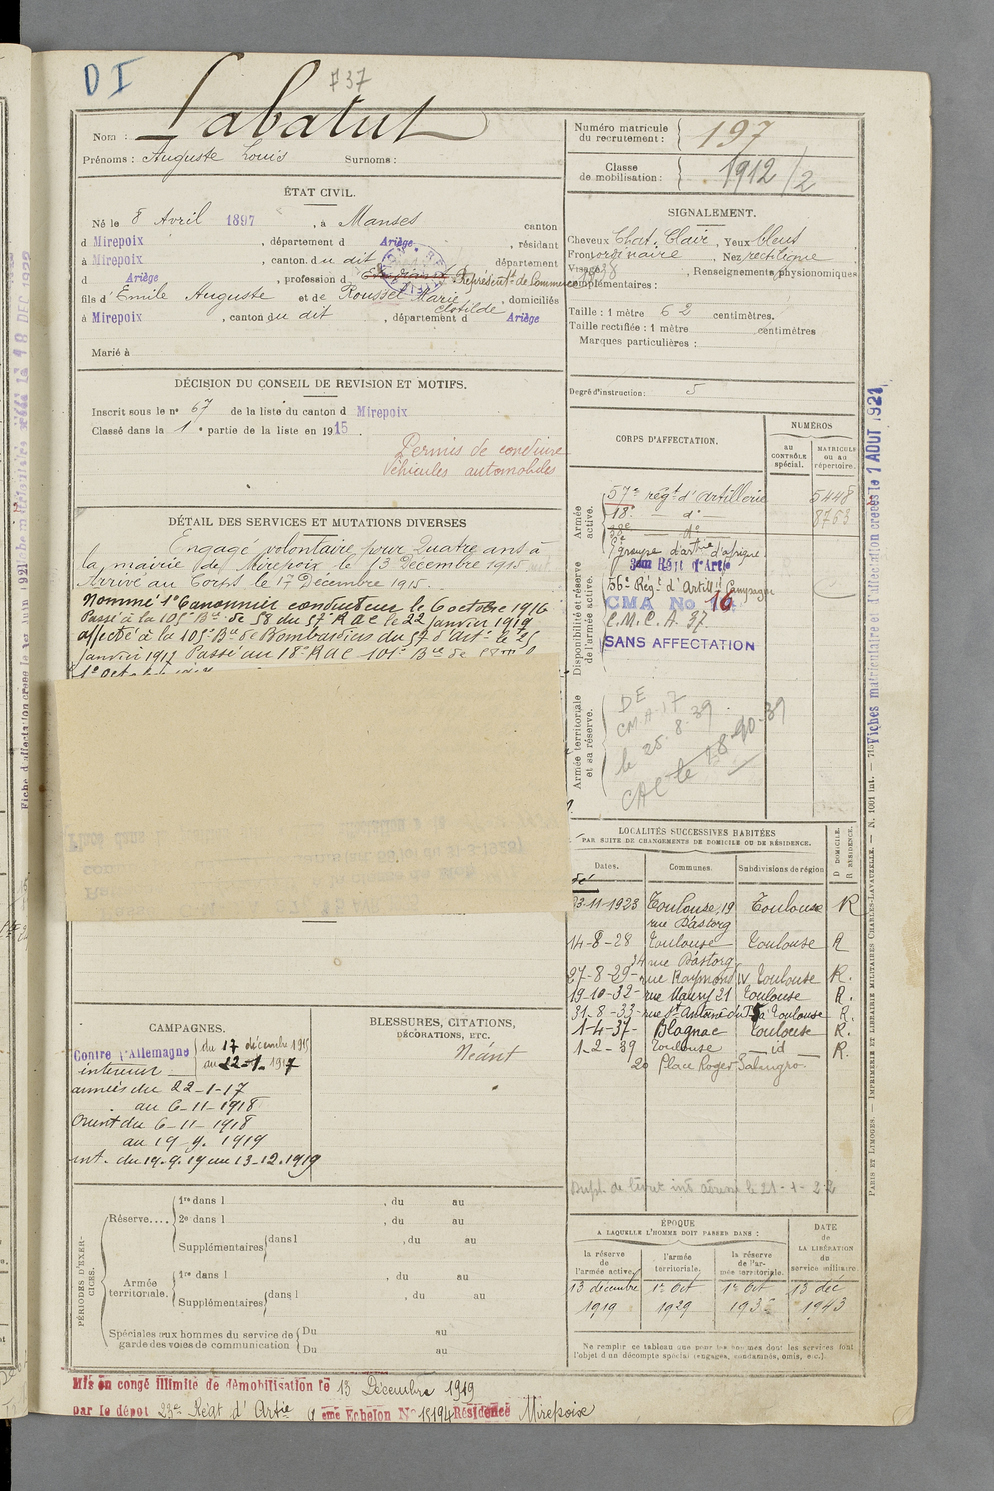 D I
737
Nom : Labatut
Prénoms : Auguste Louis Surnoms :
Numéro matricule du recrutement : 197
Classe de mobilisation : 1912/2
ÉTAT CIVIL.
Né le 8 Avril 1897, à Manses canton
d Mirepoix, département d Ariège, résidant
à Mirepoix, canton du dit département
d Ariège, profession d Représentt de Commerce
fils d'Emile Auguste et de Rousset Marie Clotilde, domiciliés
à Mirepoix, canton du dit, département d Ariège
Marié à
SIGNALEMENT.
Cheveux Chat. Clair, Yeux bleus
Front ordinaire, Nez rectiligne
Visage, Renseignements physionomiques
complémentaires :
Taille : 1 mètre 62 centimètres.
Taille rectifiée : 1 mètre centimètres
Marques particulières :
Degré d'instruction : 5
DÉCISION DU CONSEIL DE REVISION ET MOTIFS.
Inscrit sous le nº 67 de la liste du canton d Mirepoix
Classé dans la 1e partie de la liste en 1915.
Permis de conduire
Véhicules automobiles
DÉTAIL DES SERVICES ET MUTATIONS DIVERSES
Engagé volontaire pour Quatre ans à
la mairie de Mirepoix le 13 Décembre 1915
Arrivé au Corps le 17 Décembre 1915.
Nommé 1e Canonnier conducteur le 6 octobre 1916
Passé à la 105e Bie de 58 du 57e RAC le 22 janvier 1917
affecté à la 105e Bie de Bombardiers du 57 d'Artie le 25
janvier 1917 Passé au 18e RAC 101e Bie de
CORPS D'AFFECTATION.
NUMÉROS
AU CONTRÔLE spécial.
MATRICULE ou au répertoire.
Armée active.
57e régt d'Artillerie 5448
18e — do — 8763
groupe d'artie d'afrique
Disponibilité et réserve de l'armée active.
56e Régt d'Artillie Campagne
CMA No 16
C.M.C.A. 37.
SANS AFFECTATION
Armée territoriale et sa réserve.
DE
CMA-17
le 25.8.39
CAC le
LOCALITÉS SUCCESSIVES HABITÉES
PAR SUITE DE CHANGEMENTS DE DOMICILE OU DE RÉSIDENCE.
Dates. Communes. Subdivisions de région D DOMICILE. R RÉSIDENCE.
23-11-1923 Toulouse, 19 rue D'astorg Toulouse R
14-8-28 Toulouse 24 rue D'astorg Toulouse R
27-8-29- rue Raymond IV Toulouse R.
19-10-32- rue Maury 21 Toulouse R.
31-8-33- rue St Antoine du T Toulouse R.
1-4-37- Blagnac Toulouse R.
1-2-39 Toulouse — id — R.
20 Place Roger Salengro
CAMPAGNES.
Contre l'Allemagne du 17 décembre 1915
intérieur au 22-1-1917
armées du 22-1-17
au 6-11-1918
Orient du 6-11-1918
au 19-9-1919
int. du 19.9.19 au 13-12.1919
BLESSURES, CITATIONS,
DÉCORATIONS, ETC.
Néant
PÉRIODES D'EXERCICES.
Réserve.... 1re dans l , du au
2e dans l , du au
Supplémentaires dans l , du au
Armée territoriale. 1re dans l , du au
Supplémentaires dans l , du au
Spéciales aux hommes du service de garde des voies de communication Du au
Du au
ÉPOQUE
A LAQUELLE L'HOMME DOIT PASSER DANS :
la réserve de l'armée active. l'armée territoriale. la réserve de l'armée territoriale.
DATE de LA LIBÉRATION du service militaire.
13 décembre 1er Oct 1er Oct 13 déc
1919 1929 1943
Ne remplir ce tableau que pour les hommes dont les services font
l'objet d'un décompte spécial (engagés, condamnés, omis, etc.).
Mis en congé illimité de démobilisation le 13 Décembre 1919
par le dépôt 23e Régt d'Artie eme Echelon No 15194 Résidence Mirepoix
Fiches matriculaire et d'affectation créées le 1 AOUT 1921
PARIS ET LIMOGES. — IMPRIMERIE ET LIBRAIRIE MILITAIRES CHARLES-LAVAUZELLE. — N. 1001 int. —